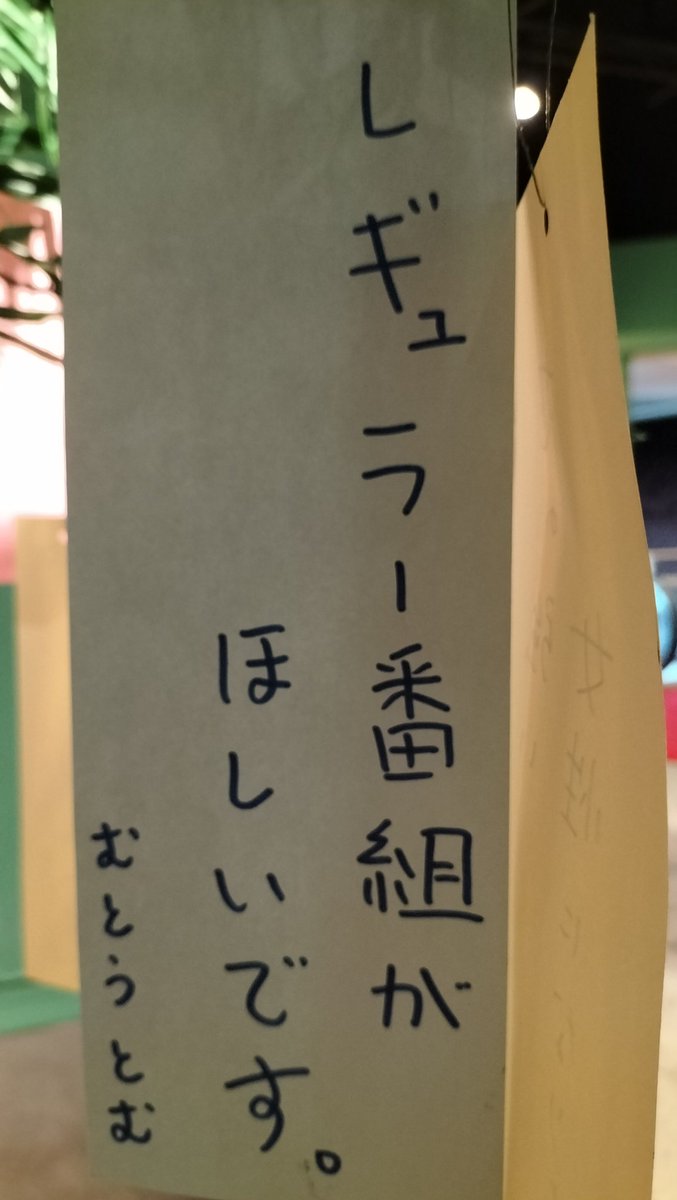 レギュラー番組が
ほしいです。
むとうとむ